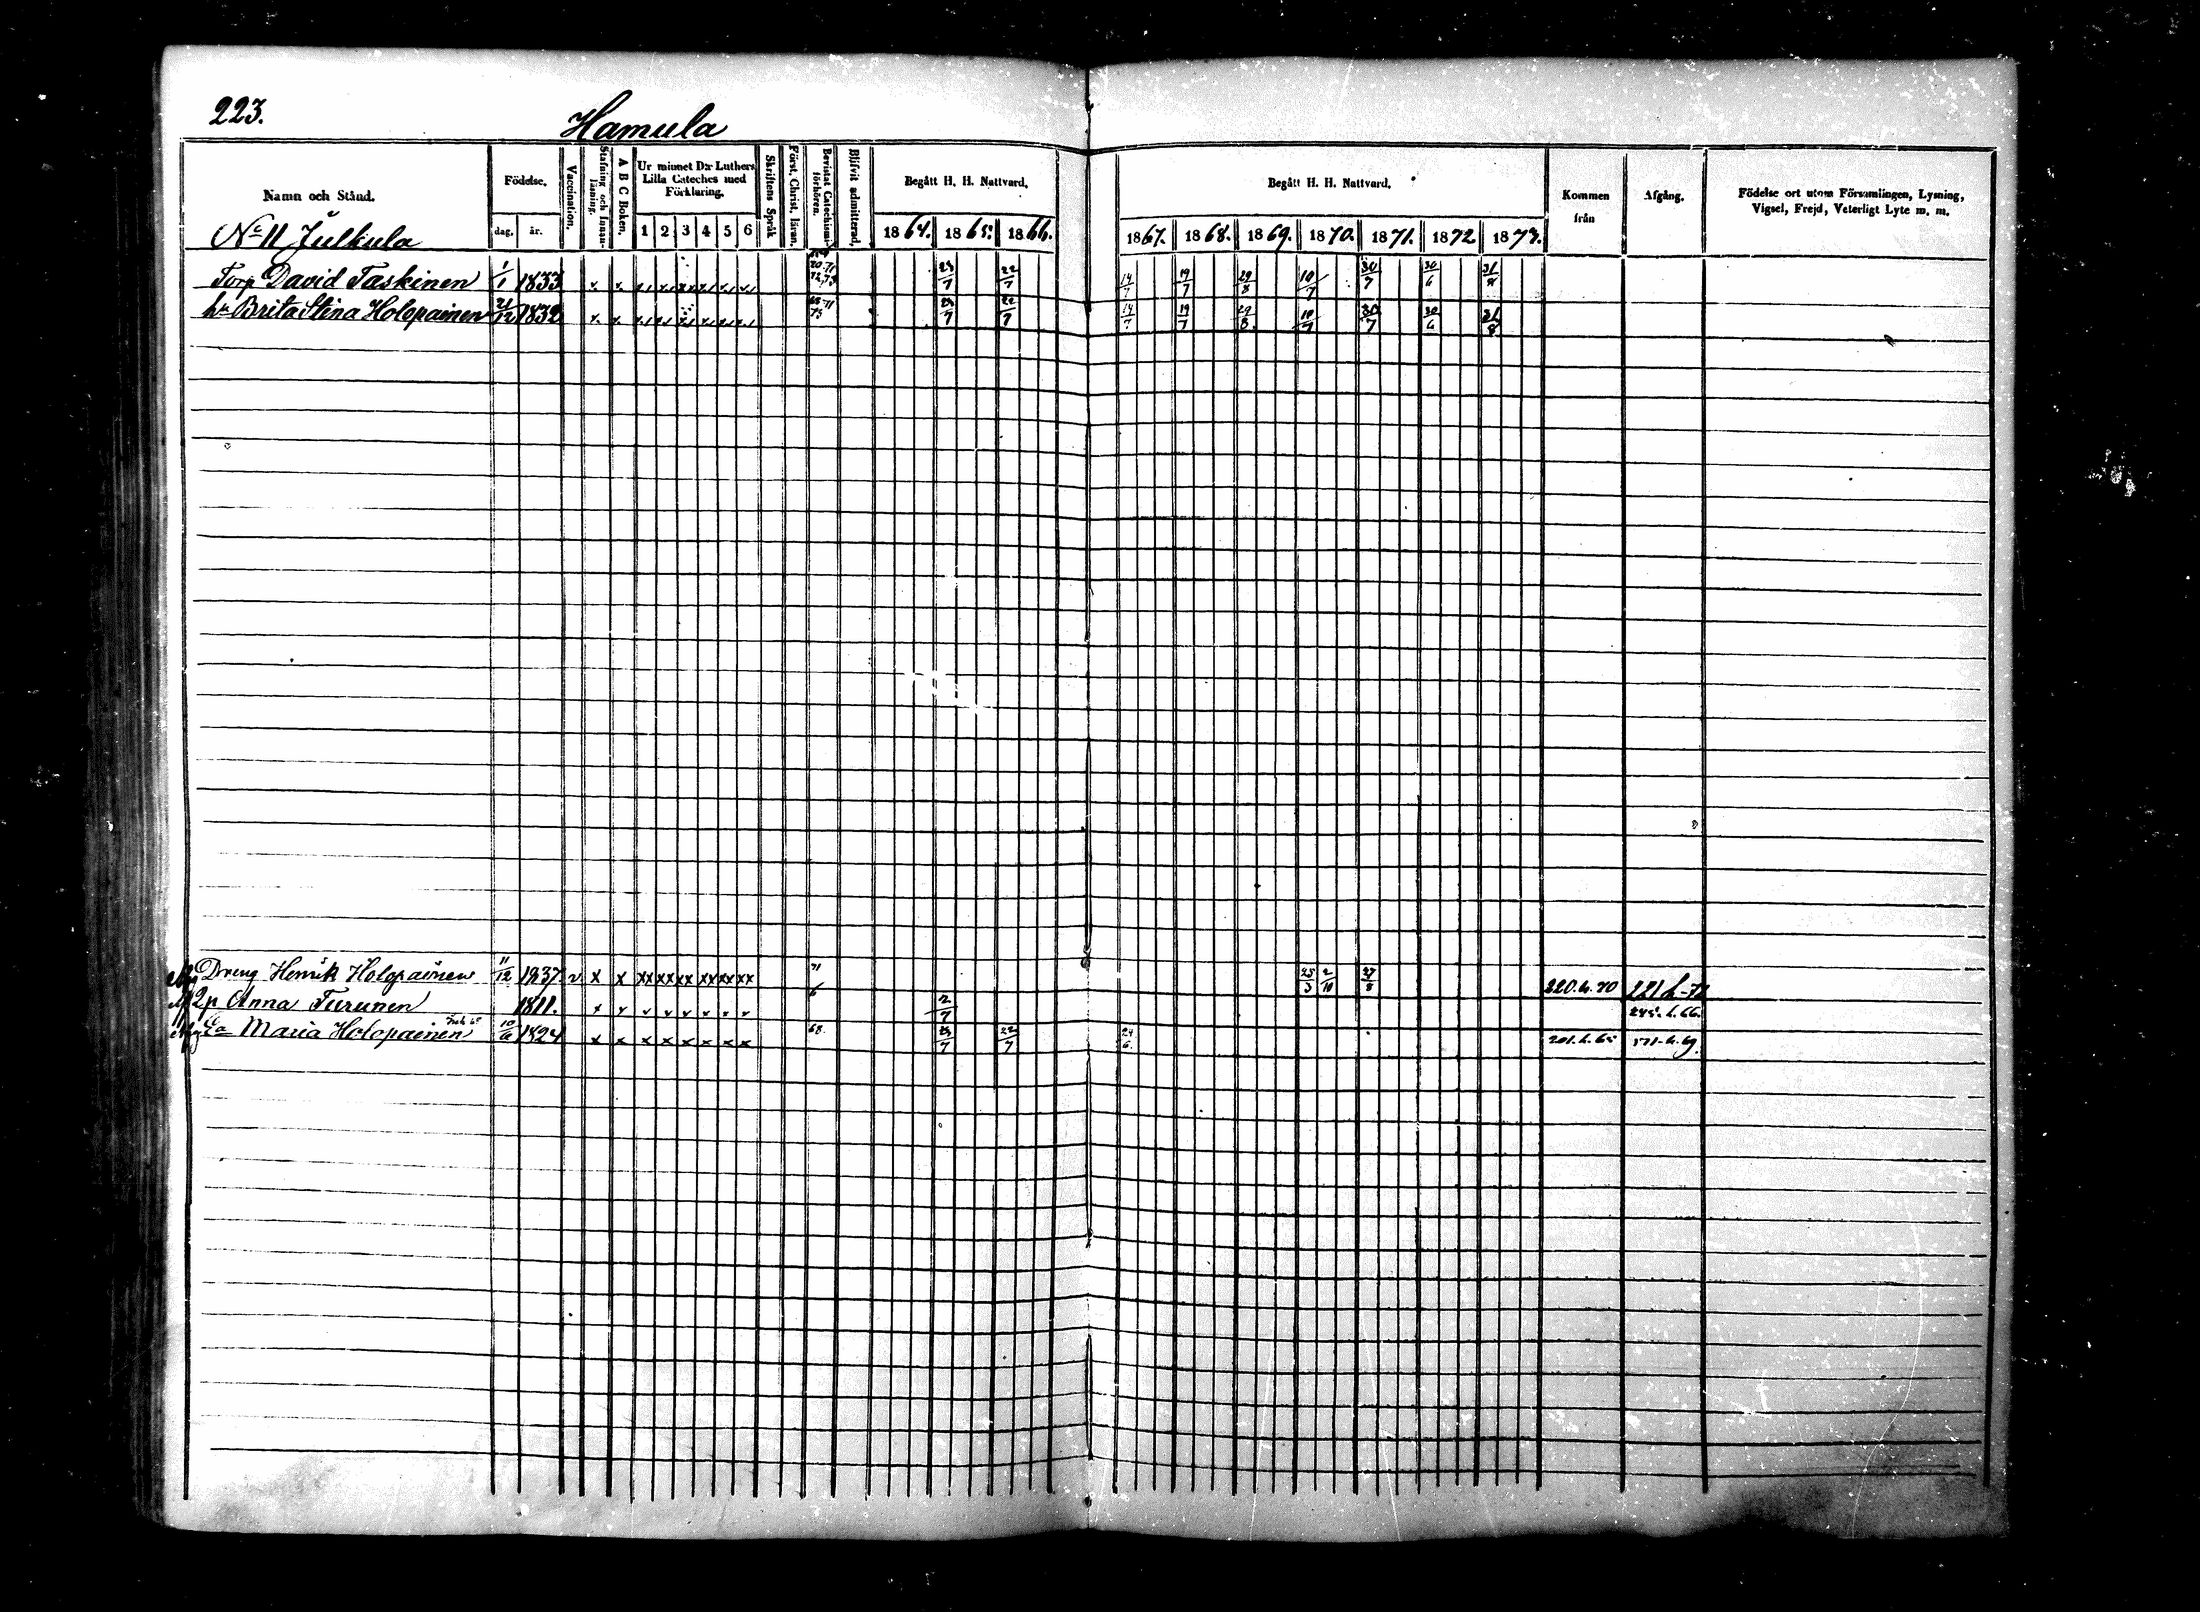 223.
Hamula
Namn och Stånd.
Födelse.
dag.
år.
Vaccination.
Stafning och Innan-
läsning.
A B C Boken.
Ur minnet D:r Luthers
Lilla Cateches med
Förklaring.
1 2 3 4 5 6
Skriftens Språk
Först. Christ. läran.
Bevistat Catechismi-
förhören.
Blifvit admitterad.
Begått H. H. Nattvard.
1864. 1865. 1866.
Begått H. H. Nattvard.
1867. 1868. 1869. 1870. 1871. 1872 1873.
Kommen
från
Afgång.
Födelse ort utom Församlingen, Lysning,
Vigsel, Frejd, Veterligt Lyte m. m.
No 11 Julkula
Torp David Taskinen 1/1 1833 x x 23/7 22/7 14/7 19/7 29/8 10/7 30/7 30/6 31/8
h. Brita Stina Holopainen 21/12 1832 x x 23/7 22/7 14/7 19/7 29/8 10/7 30/7 30/6 31/8
Dreng Henrik Holopainen 11/12 1837 v x x xx xx xx xx xx xx 71 25/3 2/10 27/8 220.h.70 221 h-72
Anna Turunen 1811. 2/7 245.h.66.
Maria Holopainen 10/6 1824 x x x x x x x x 68. 23/7 22/7 24/6. 201.h.65 571-h.69.